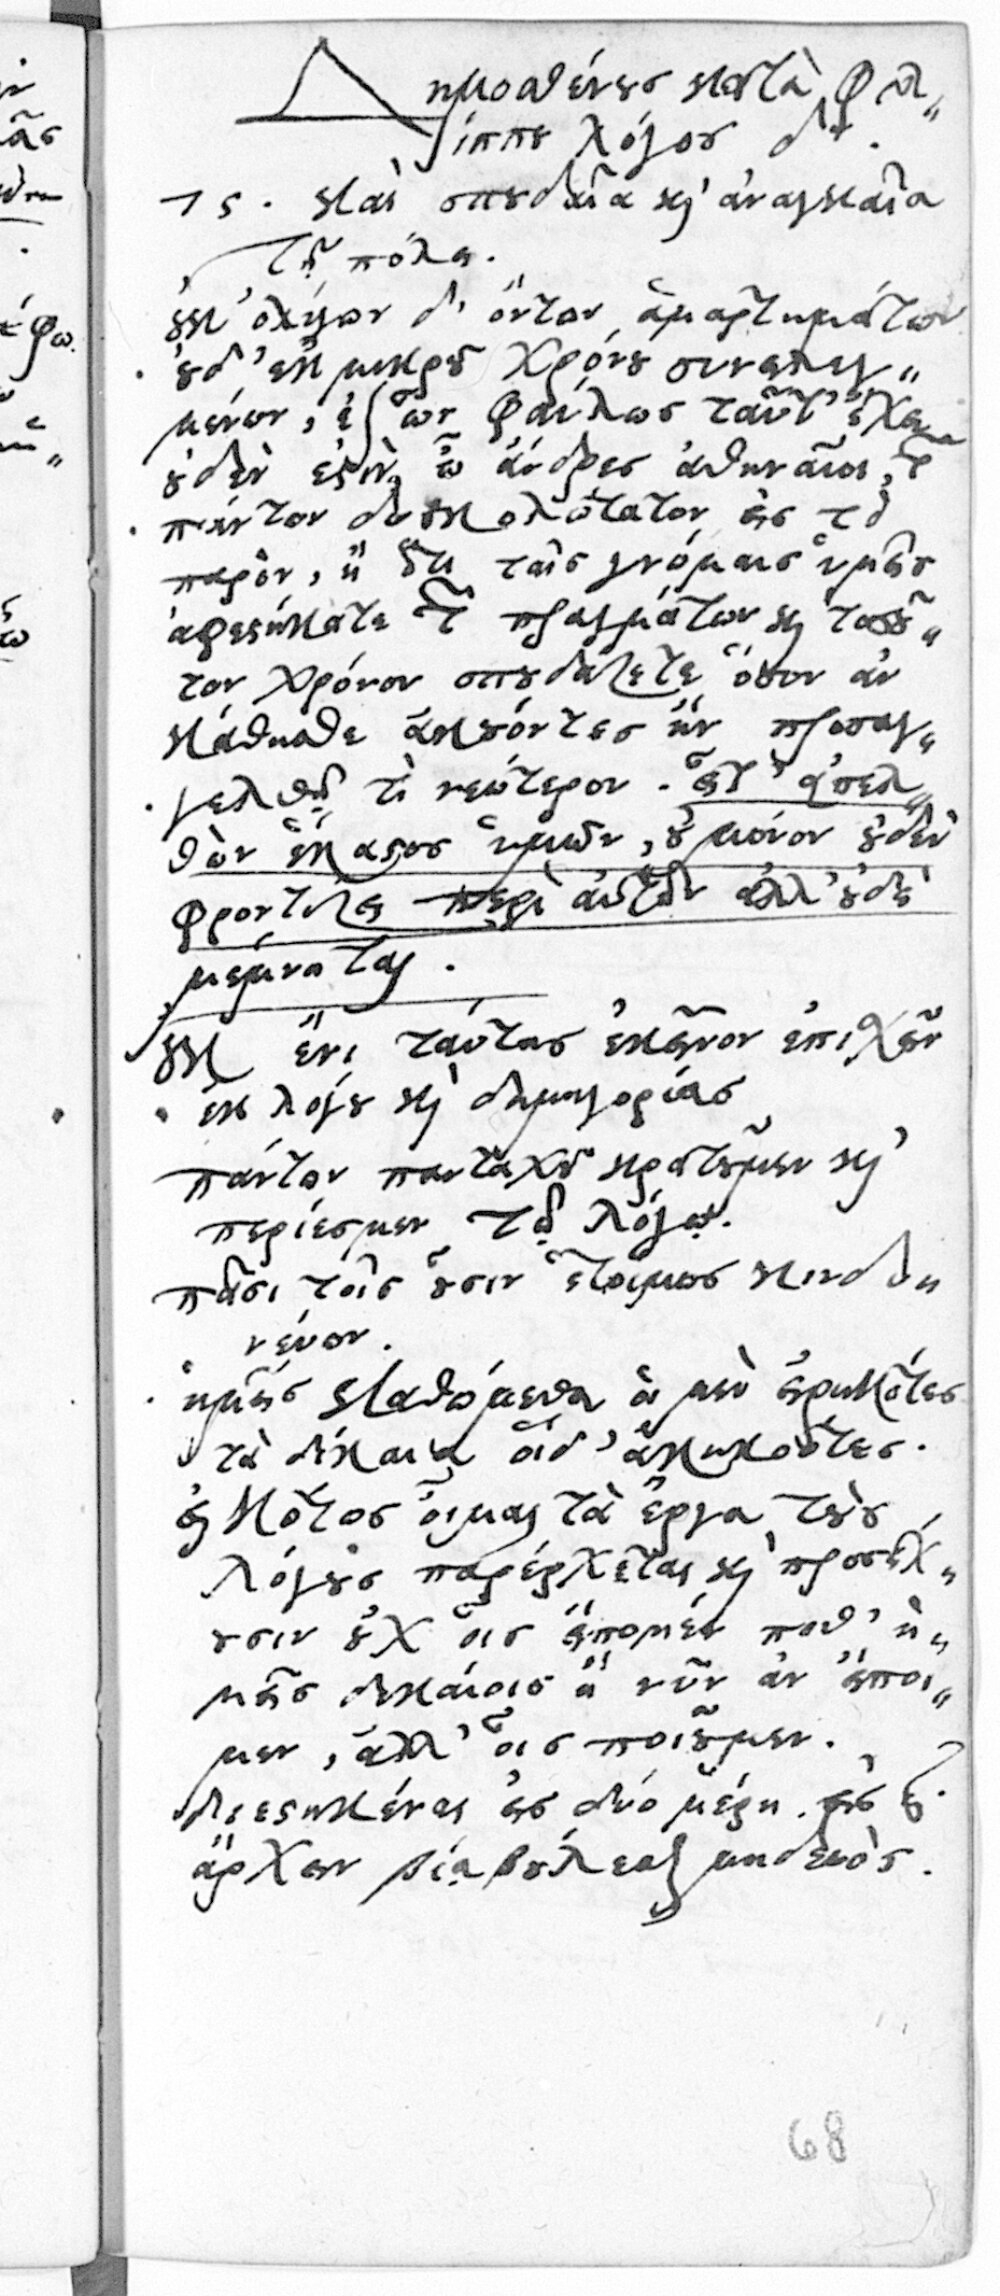 Δημοσθένους κατὰ Φιλ„
ίππου λόγος δ+.
75. καὶ σπουδαῖα καὶ ἀναγκαῖα
τῇ πόλει.
οὐκ ὀλίγων δ' ὄντων ἁμαρτημάτων
οὐδ' ἐκ μικροῦ χρόνου συνειλεγ„
μένων, ἐξ ὧν φαύλως ταῦτ' ἔχει
οὐδέν ἐστιν, ὦ ἄνδρες ἀθηναῖοι, τῶν
πάντων δυσκολώτατον εἰς τὸ
παρὸν, ἢ ὅτι ταῖς γνώμαις ὑμεῖς
ἀφεστήκατε τῶν πραγμάτων καὶ τοσοῦ„
τον χρόνον σπουδάζετε ὅσον ἂν
κάθησθε ἀκούοντες ἢν προσαγ„
γελθῇ τὶ νεώτερον. εἶτ' ἀπελ„
θὼν ἕκαστος ὑμῶν, οὐ μόνον οὐδὲν
φροντίζει περὶ αὐτῶν ἀλλ' οὐδὲ
μέμνηται.
οὐκ ἔνι ταύτας ἐκεῖνον ἐπισχεῖν
ἐκ λόγου καὶ δημηγορίας
πάντων πανταχοῦ κρατοῦμεν καὶ
περίεσμεν τῷ λόγῳ.
πᾶσι τοῖς οὖσιν ἑτοίμως κινδυ„
νεύων.
ἡμεῖς καθώμεθα οἱ μὲν εἰρηκότες
τὰ δίκαια οἱ δ' ἀκηκοότες.
εἰκότως οἶμαι τὰ ἔργα τοὺς
λόγους παρέρχεται καὶ προσέχ„
ουσιν οὐχ οἷς εἴπομέν ποθ' ἡ„
μεῖς δικαίοις ἢ νῦν ἂν εἴποι„
μεν, ἀλλ' οἷς ποιοῦμεν.
διεστηκέναι εἰς δύο μέρη. εἰς
ἄρχειν βίᾳ βούλεσθαι μηδενὸς.
68